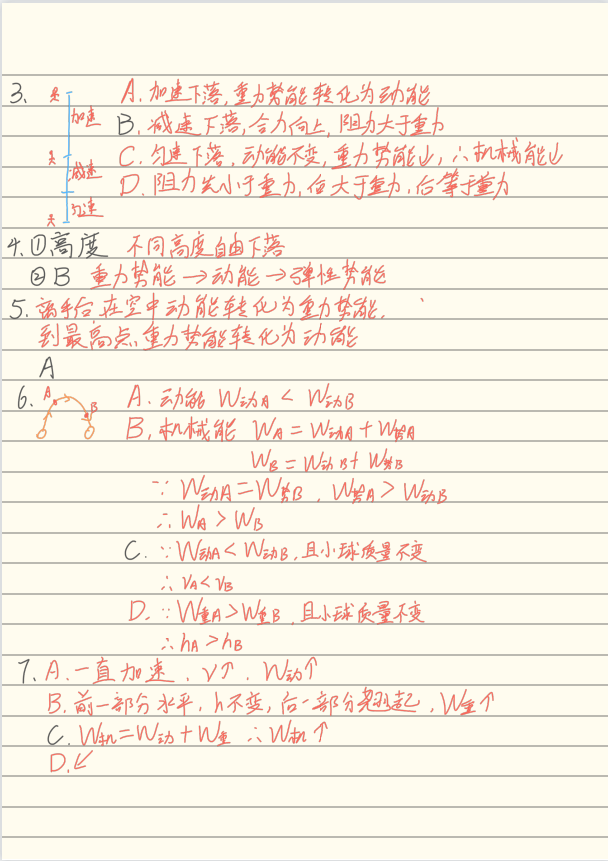 3. A. 加速下落,重力势能转化为动能
加速 B. 减速下落,合力向上,阻力大于重力
减速 C. 匀速下落,动能不变,重力势能↓,∴机械能↓
匀速 D. 阻力先小于重力,后大于重力,后等于重力
4. ①高度 不同高度自由下落
②B 重力势能→动能→弹性势能
5. 离手后,在空中动能转化为重力势能.
到最高点,重力势能转化为动能
A
6. A B A. 动能 W动A < W动B
B. 机械能 WA = W动A + W势A
WB = W动B + W势B
∵ W动A = W势B . W势A > W动B
∴ WA > WB
C. ∵ W动A < W动B ,且小球质量不变
∴ vA < vB
D. ∵ W重A > W重B ,且小球质量不变
∴ hA > hB
7. A. 一直加速 . v↑ . W动↑
B. 前一部分水平, h不变, 后一部分翘起 . W重↑
C. W机 = W动 + W重 ∴ W机↑
D. ↙